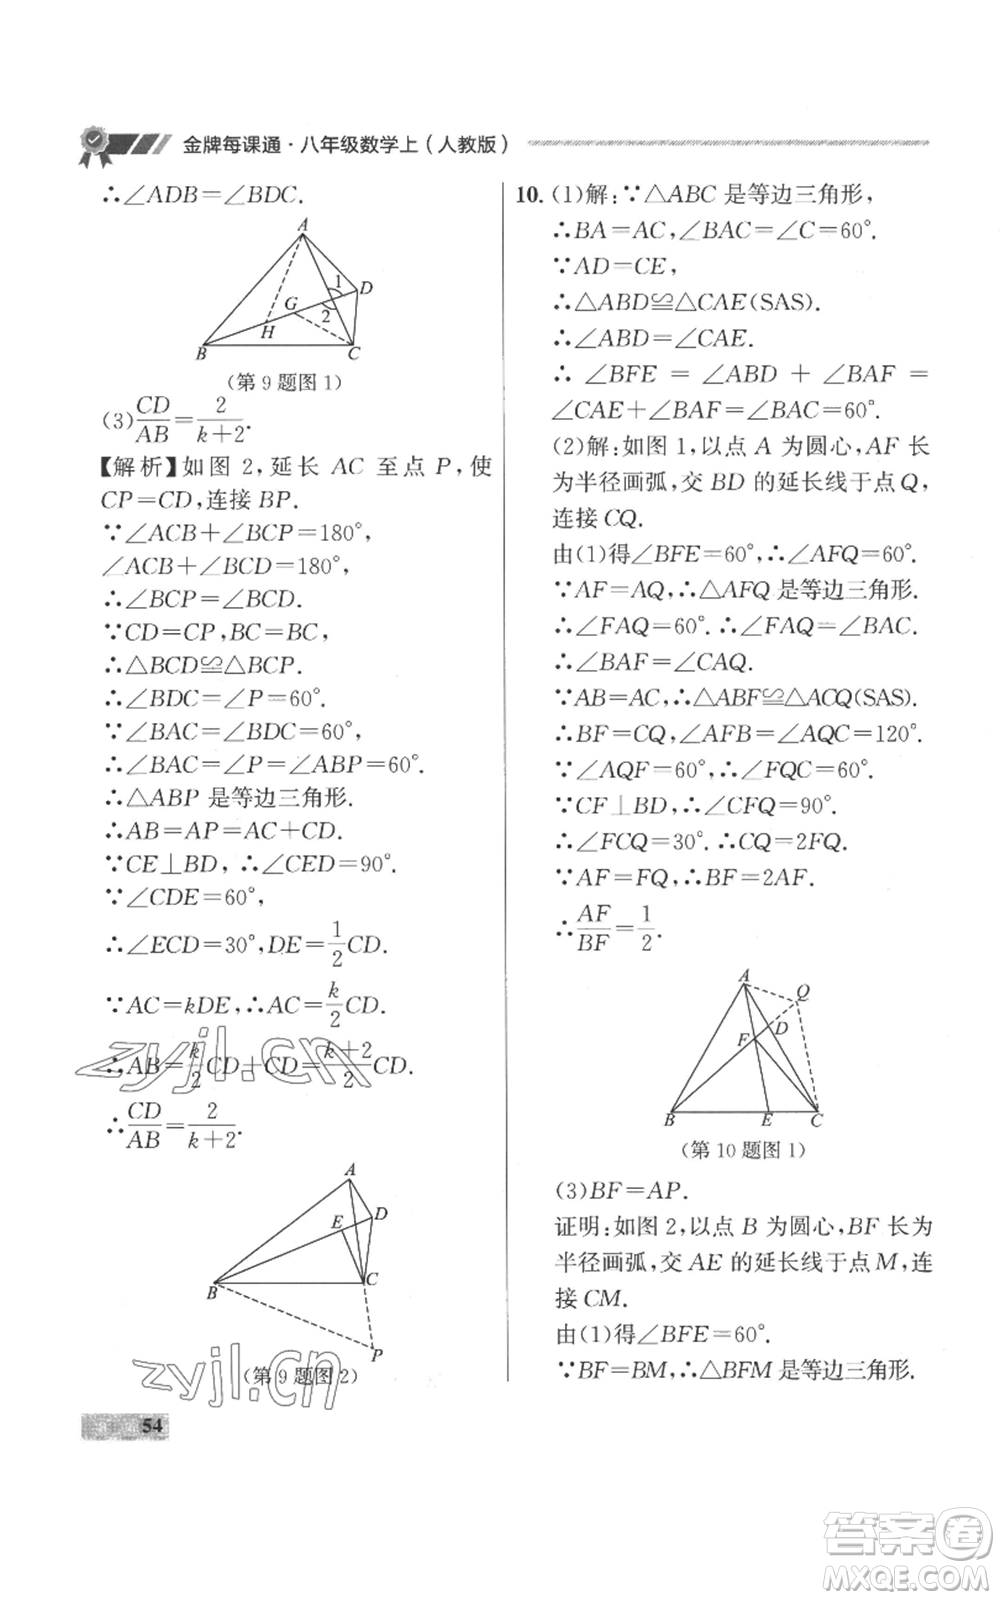 金牌每课通·八年级数学上（人教版）
∴∠ADB=∠BDC.
A
1
D
G
2
H
B
C
(第9题图1)
(3)CD/AB=2/(k+2).
【解析】如图 2,延长 AC 至点 P,使
CP=CD,连接BP.
∵∠ACB+∠BCP=180°,
∠ACB+∠BCD=180°,
∴∠BCP=∠BCD.
∵CD=CP,BC=BC,
∴△BCD≌△BCP.
∴∠BDC=∠P=60°.
∵∠BAC=∠BDC=60°,
∴∠BAC=∠P=∠ABP=60°.
∴△ABP是等边三角形.
∴AB=AP=AC+CD.
∵CE⊥BD,∴∠CED=90°.
∵∠CDE=60°,
∴∠ECD=30°,DE=1/2CD.
∵AC=kDE,∴AC=k/2CD.
∴AB=k/2CD+CD=(k+2)/2CD.
∴CD/AB=2/(k+2).
A
D
E
B
C
P
(第9题图2)
54
10. (1)解:∵△ABC是等边三角形,
∴BA=AC,∠BAC=∠C=60°.
∵AD=CE,
∴△ABD≌△CAE(SAS).
∴∠ABD=∠CAE.
∴ ∠BFE = ∠ABD + ∠BAF =
∠CAE+∠BAF=∠BAC=60°.
(2)解:如图1,以点A为圆心,AF长
为半径画弧,交BD的延长线于点Q,
连接CQ.
由(1)得∠BFE=60°,∴∠AFQ=60°.
∵AF=AQ,∴△AFQ是等边三角形.
∴∠FAQ=60°.∴∠FAQ=∠BAC.
∴∠BAF=∠CAQ.
∵AB=AC,∴△ABF≌△ACQ(SAS).
∴BF=CQ,∠AFB=∠AQC=120°.
∵∠AQF=60°,∴∠FQC=60°.
∵CF⊥BD,∴∠CFQ=90°.
∴∠FCQ=30°.∴CQ=2FQ.
∵AF=FQ,∴BF=2AF.
∴AF/BF=1/2.
A
Q
D
F
B
E
C
(第10题图1)
(3)BF=AP.
证明:如图2,以点B为圆心,BF长为
半径画弧,交AE的延长线于点M,连
接CM.
由(1)得∠BFE=60°.
∵BF=BM,∴△BFM是等边三角形.
zyjl.cn
zyjl.cn
答案卷
MXQE.COM